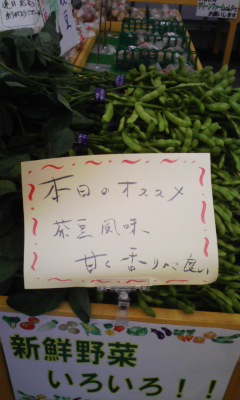 本日のオススメ
茶豆風味、
甘く香りが良い
新鮮野菜
いろいろ！！